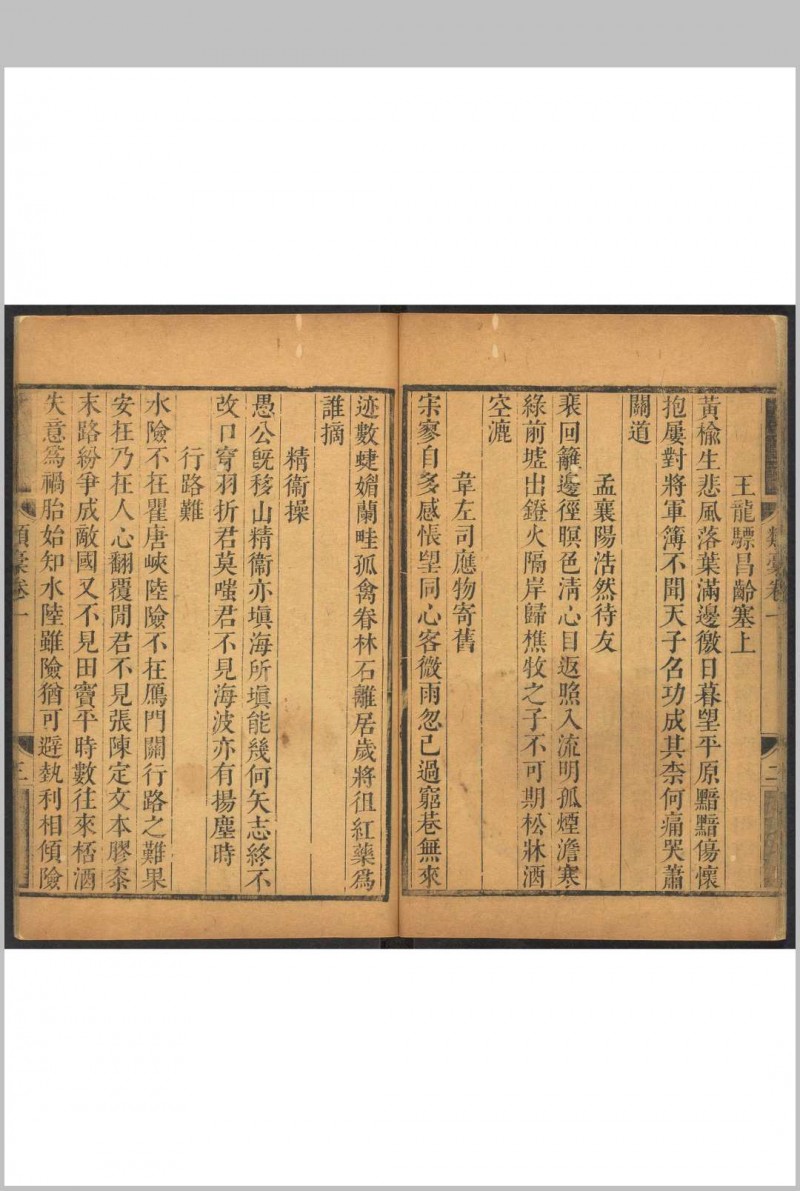 王龍驃昌齡塞上
黃榆生悲風落葉滿邊徼日暮朢平原黯黯傷懷
抱屢對將軍簿不聞天子名功成其柰何痛哭蕭
關道
孟襄陽浩然待友
裵回籬邊徑暝色淸心目返照入流明孤煙澹寒
綠前墟出鐙火隔岸歸樵牧之子不可期松牀酒
空漉
韋左司應物寄舊
宋寥自多感悵朢同心客微雨忽已過窮巷無來
迹數蜨媚蘭畦孤禽眷林石離居歲將徂紅藥爲
誰摘
精衞操
愚公旣移山精衞亦塡海所塡能幾何矢志終不
改口穿羽折君莫嗤君不見海波亦有揚塵時
行路難
水險不在瞿唐峽陸險不在鴈門關行路之難果
安在乃在人心翻覆閒君不見張陳定文本膠桼
末路紛爭成敵國又不見田竇平時數往來桮酒
失意爲禍胎始知水陸雖險猶可避埶利相傾險
類稾卷一
二
類稾卷一
三